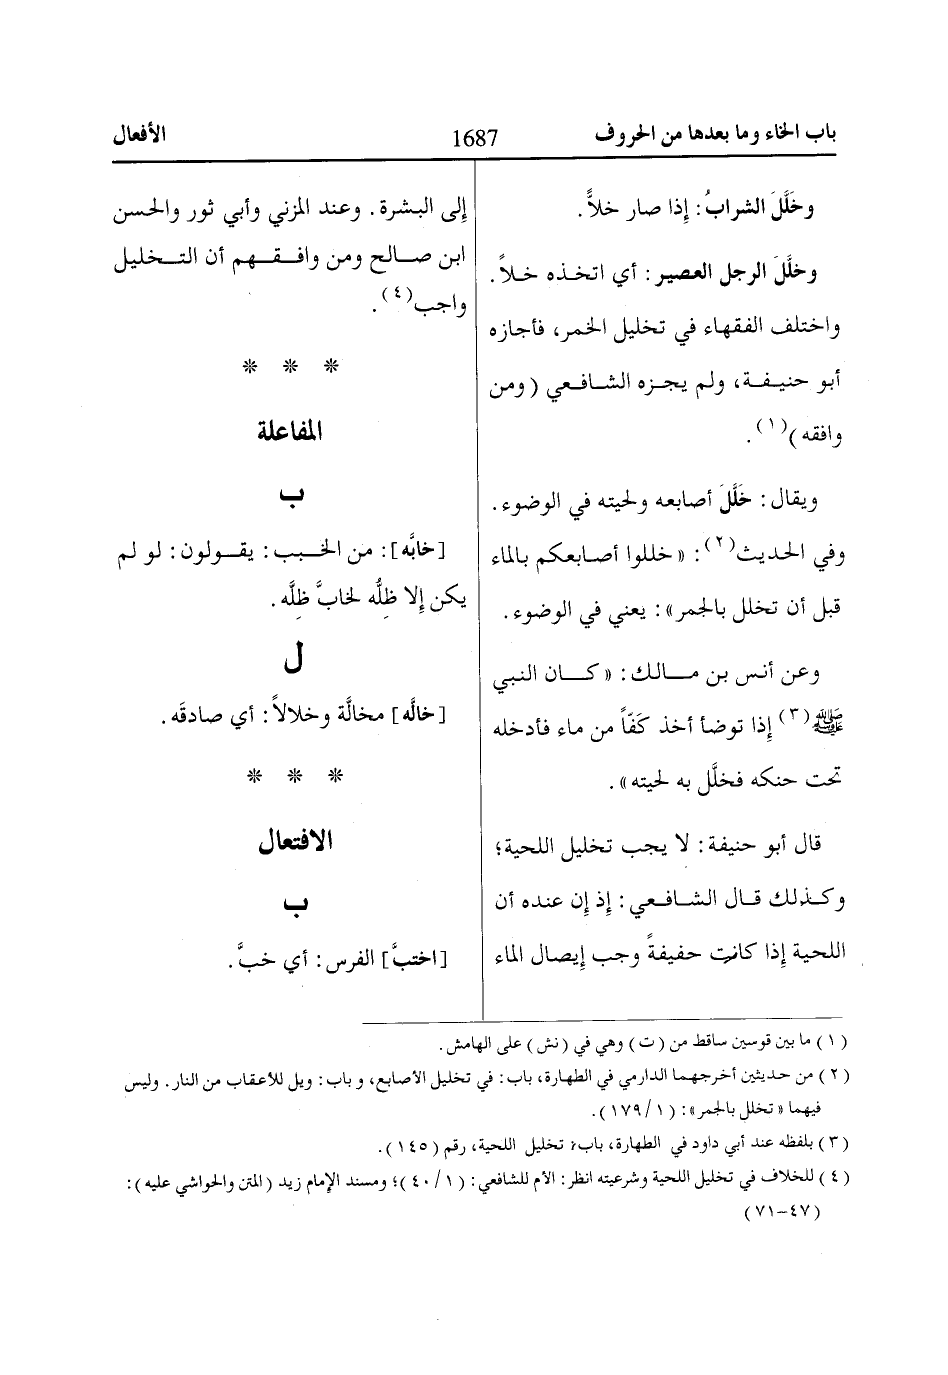 باب الخاء وما بعدها من الحروف 1687 الأفعال
وخَلَّلَ الشرابُ: إِذا صار خلاًّ.
وخلَّلَ الرجل العصير: أي اتخذه خلاً.
واختلف الفقهاء في تخليل الخمر، فأجازه
أبو حنيفة، ولم يجزه الشافعي (ومن
وافقه)(١).
ويقال: خَلَّلَ أصابعه ولحيته في الوضوء.
وفي الحديث(٢): «خللوا أصابعكم بالماء
قبل أن تخلل بالجمر»: يعني في الوضوء.
وعن أنس بن مالك: «كان النبي
ﷺ(٣) إِذا توضأ أخذ كَفّاً من ماء فأدخله
تحت حنكه فخلَّل به لحيته».
قال أبو حنيفة: لا يجب تخليل اللحية؛
وكذلك قال الشافعي: إِذ إِن عنده أن
اللحية إِذا كانت حفيفةً وجب إِيصال الماء
إلى البشرة. وعند المزني وأبي ثور والحسن
ابن صالح ومن وافقهم أن التخليل
واجب(٤).
* * *
المفاعلة
ب
[خابَّه]: من الخبب: يقولون: لو لم
يكن إِلا ظِلُّه لخابَّ ظِلَّه.
ل
[خالَّه] مخالَّة وخلالاً: أي صادقَه.
* * *
الافتعال
ب
[اختبَّ] الفرس: أي خبَّ.
(١) ما بين قوسين ساقط من (ت) وهي في (نش) على الهامش.
(٢) من حديثين أخرجهما الدارمي في الطهارة، باب: في تخليل الأصابع، و باب: ويل للأعقاب من النار. وليس
فيهما «تخلل بالجمر»: (١/١٧٩).
(٣) بلفظه عند أبي داود في الطهارة، باب: تخليل اللحية، رقم (١٤٥).
(٤) للخلاف في تخليل اللحية وشرعيته انظر: الأم للشافعي: (١/٤٠)؛ ومسند الإمام زيد (المتن والحواشي عليه):
(٤٧-٧١)